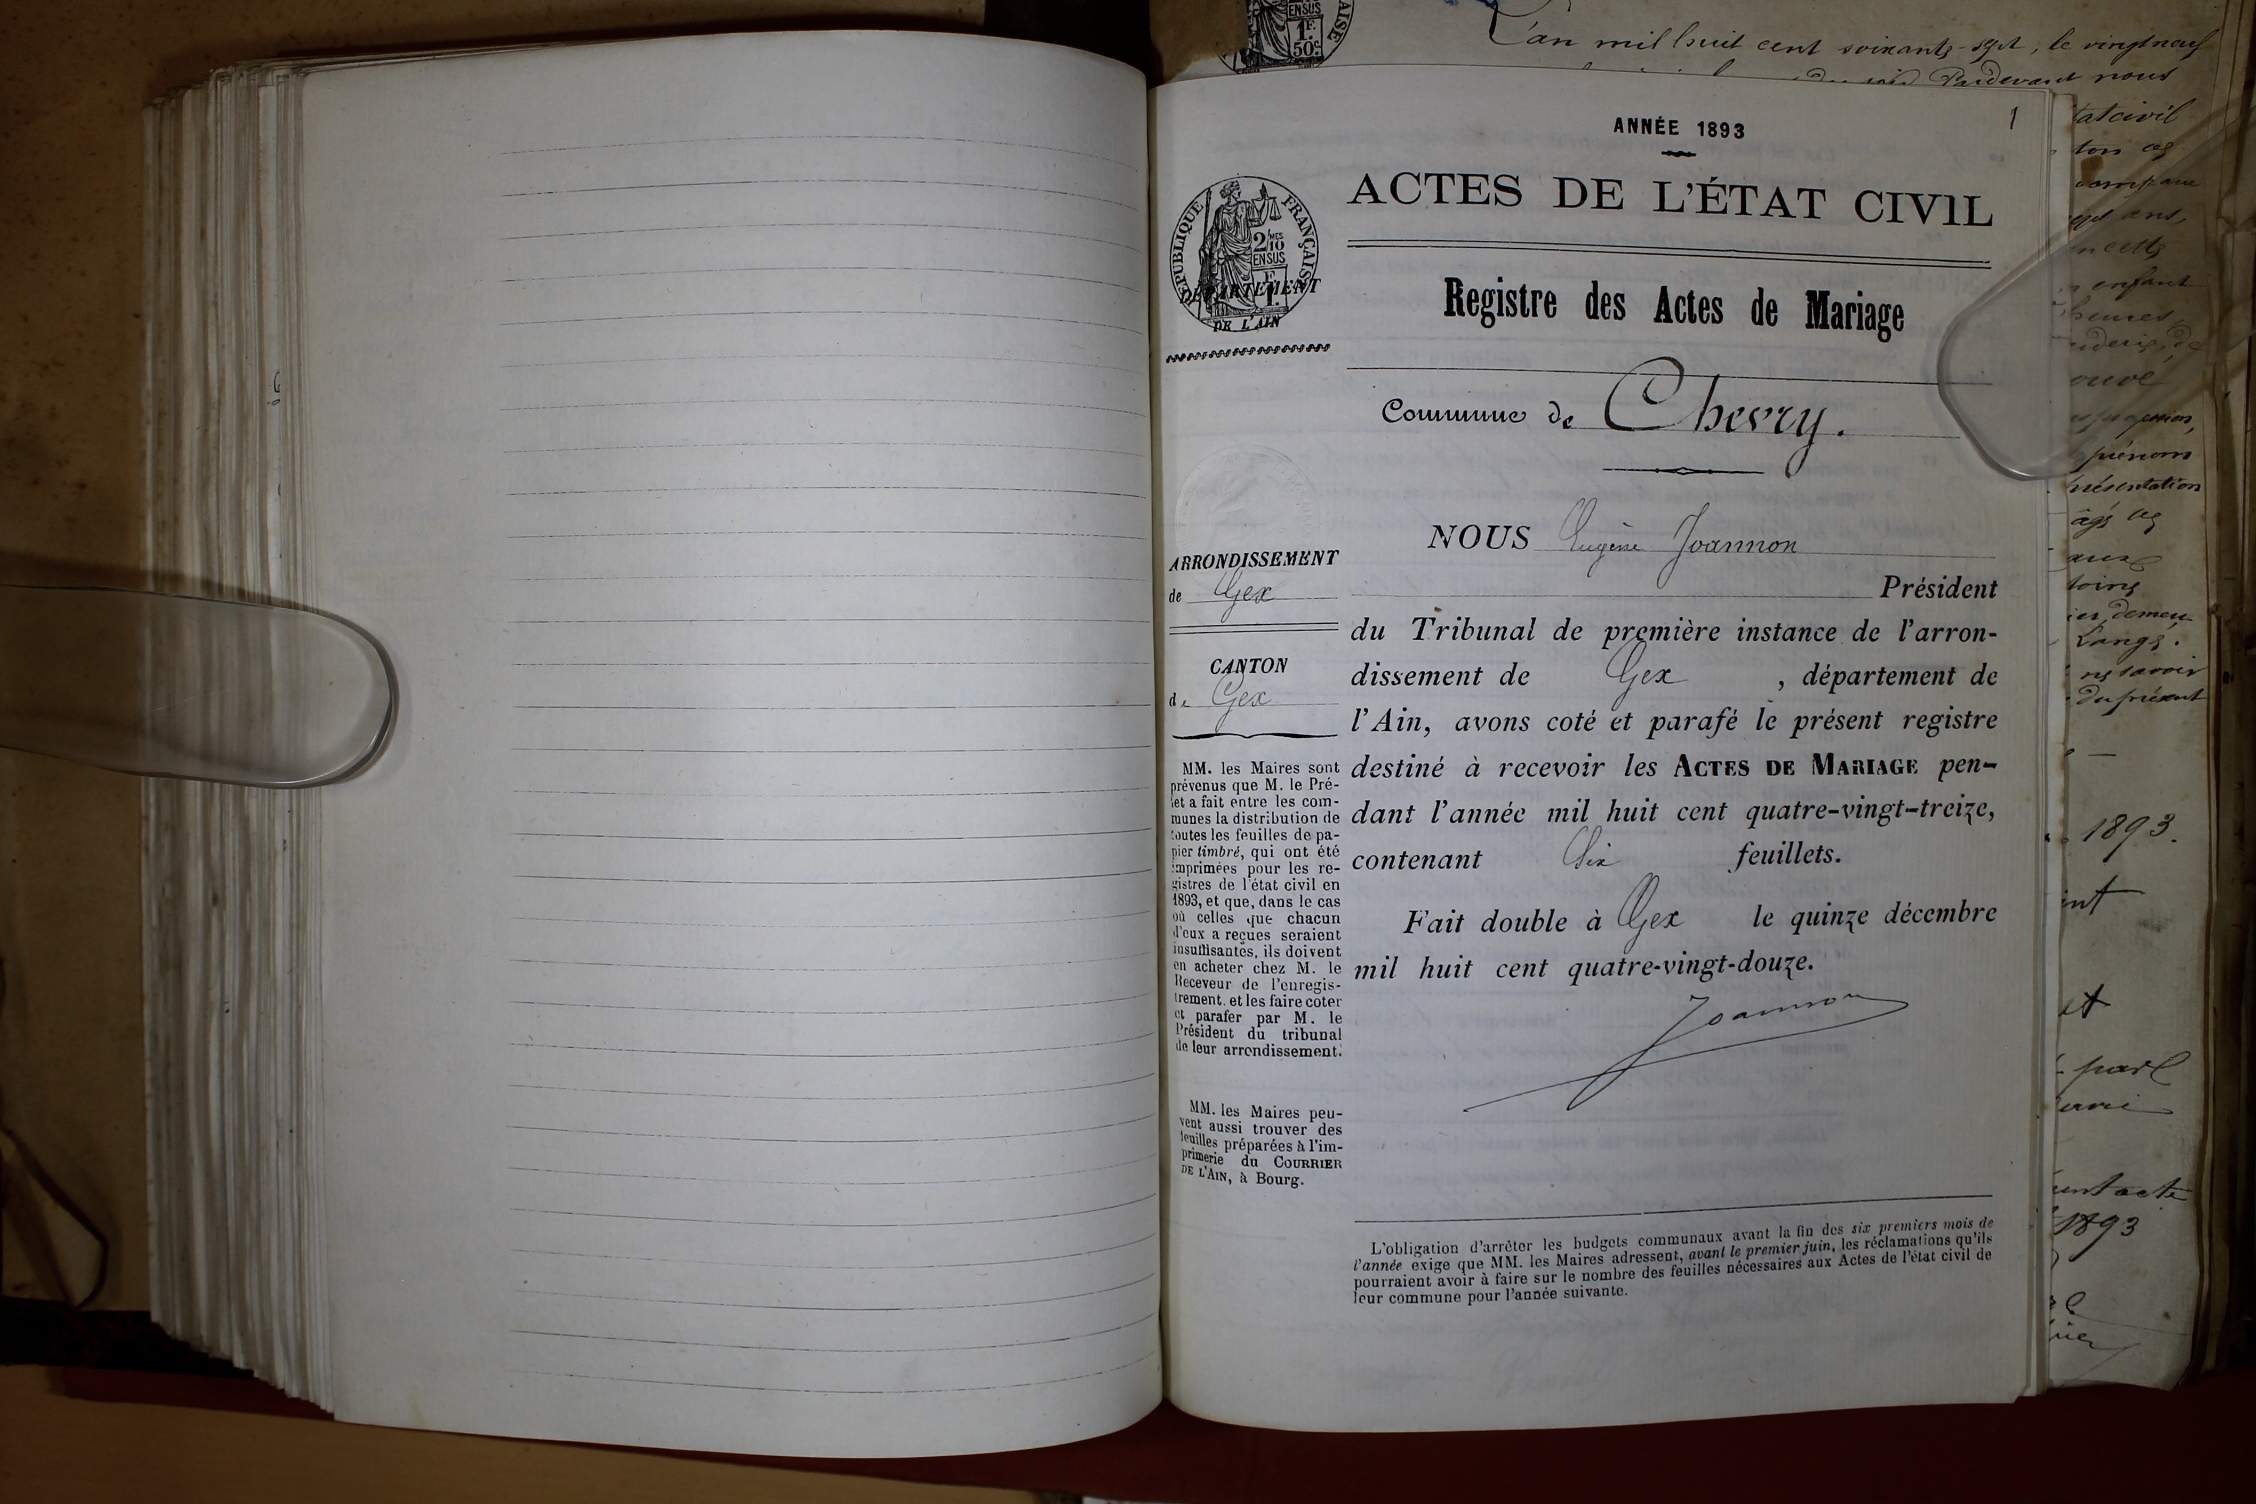 1
ANNÉE 1893
ACTES DE L'ÉTAT CIVIL
Registre des Actes de Mariage
Commune de Chevry.
RÉPUBLIQUE FRANÇAISE
2/10 MES
EN SUS
1 F.
DÉPARTEMENT
DE L'AIN
ARRONDISSEMENT
de Gex
CANTON
de Gex
MM. les Maires sont
prévenus que M. le Pré-
fet a fait entre les com-
munes la distribution de
toutes les feuilles de pa-
pier timbré, qui ont été
imprimées pour les re-
gistres de l'état civil en
1893, et que, dans le cas
où celles que chacun
d'eux a reçues seraient
insuffisantes, ils doivent
en acheter chez M. le
Receveur de l'enregis-
trement. et les faire coter
et parafer par M. le
Président du tribunal
de leur arrondissement.
MM. les Maires peu-
vent aussi trouver des
feuilles préparées à l'im-
primerie du COURRIER
DE L'AIN, à Bourg.
NOUS Eugène Joannon
Président
du Tribunal de première instance de l'arron-
dissement de Gex , département de
l'Ain, avons coté et parafé le présent registre
destiné à recevoir les ACTES DE MARIAGE pen-
dant l'année mil huit cent quatre-vingt-treize,
contenant Six feuillets.
Fait double à Gex le quinze décembre
mil huit cent quatre-vingt-douze.
Joannon
L'obligation d'arrêter les budgets communaux avant la fin des six premiers mois de
l'année exige que MM. les Maires adressent, avant le premier juin, les réclamations qu'ils
pourraient avoir à faire sur le nombre des feuilles nécessaires aux Actes de l'état civil de
leur commune pour l'année suivante.
EN SUS
1 F.
50 c.
L'an mil huit cent soixante-sept, le vingt neuf
Pardevant nous
enfant
heures
prénoms
présentation
savoir
du présent
1893.
1893